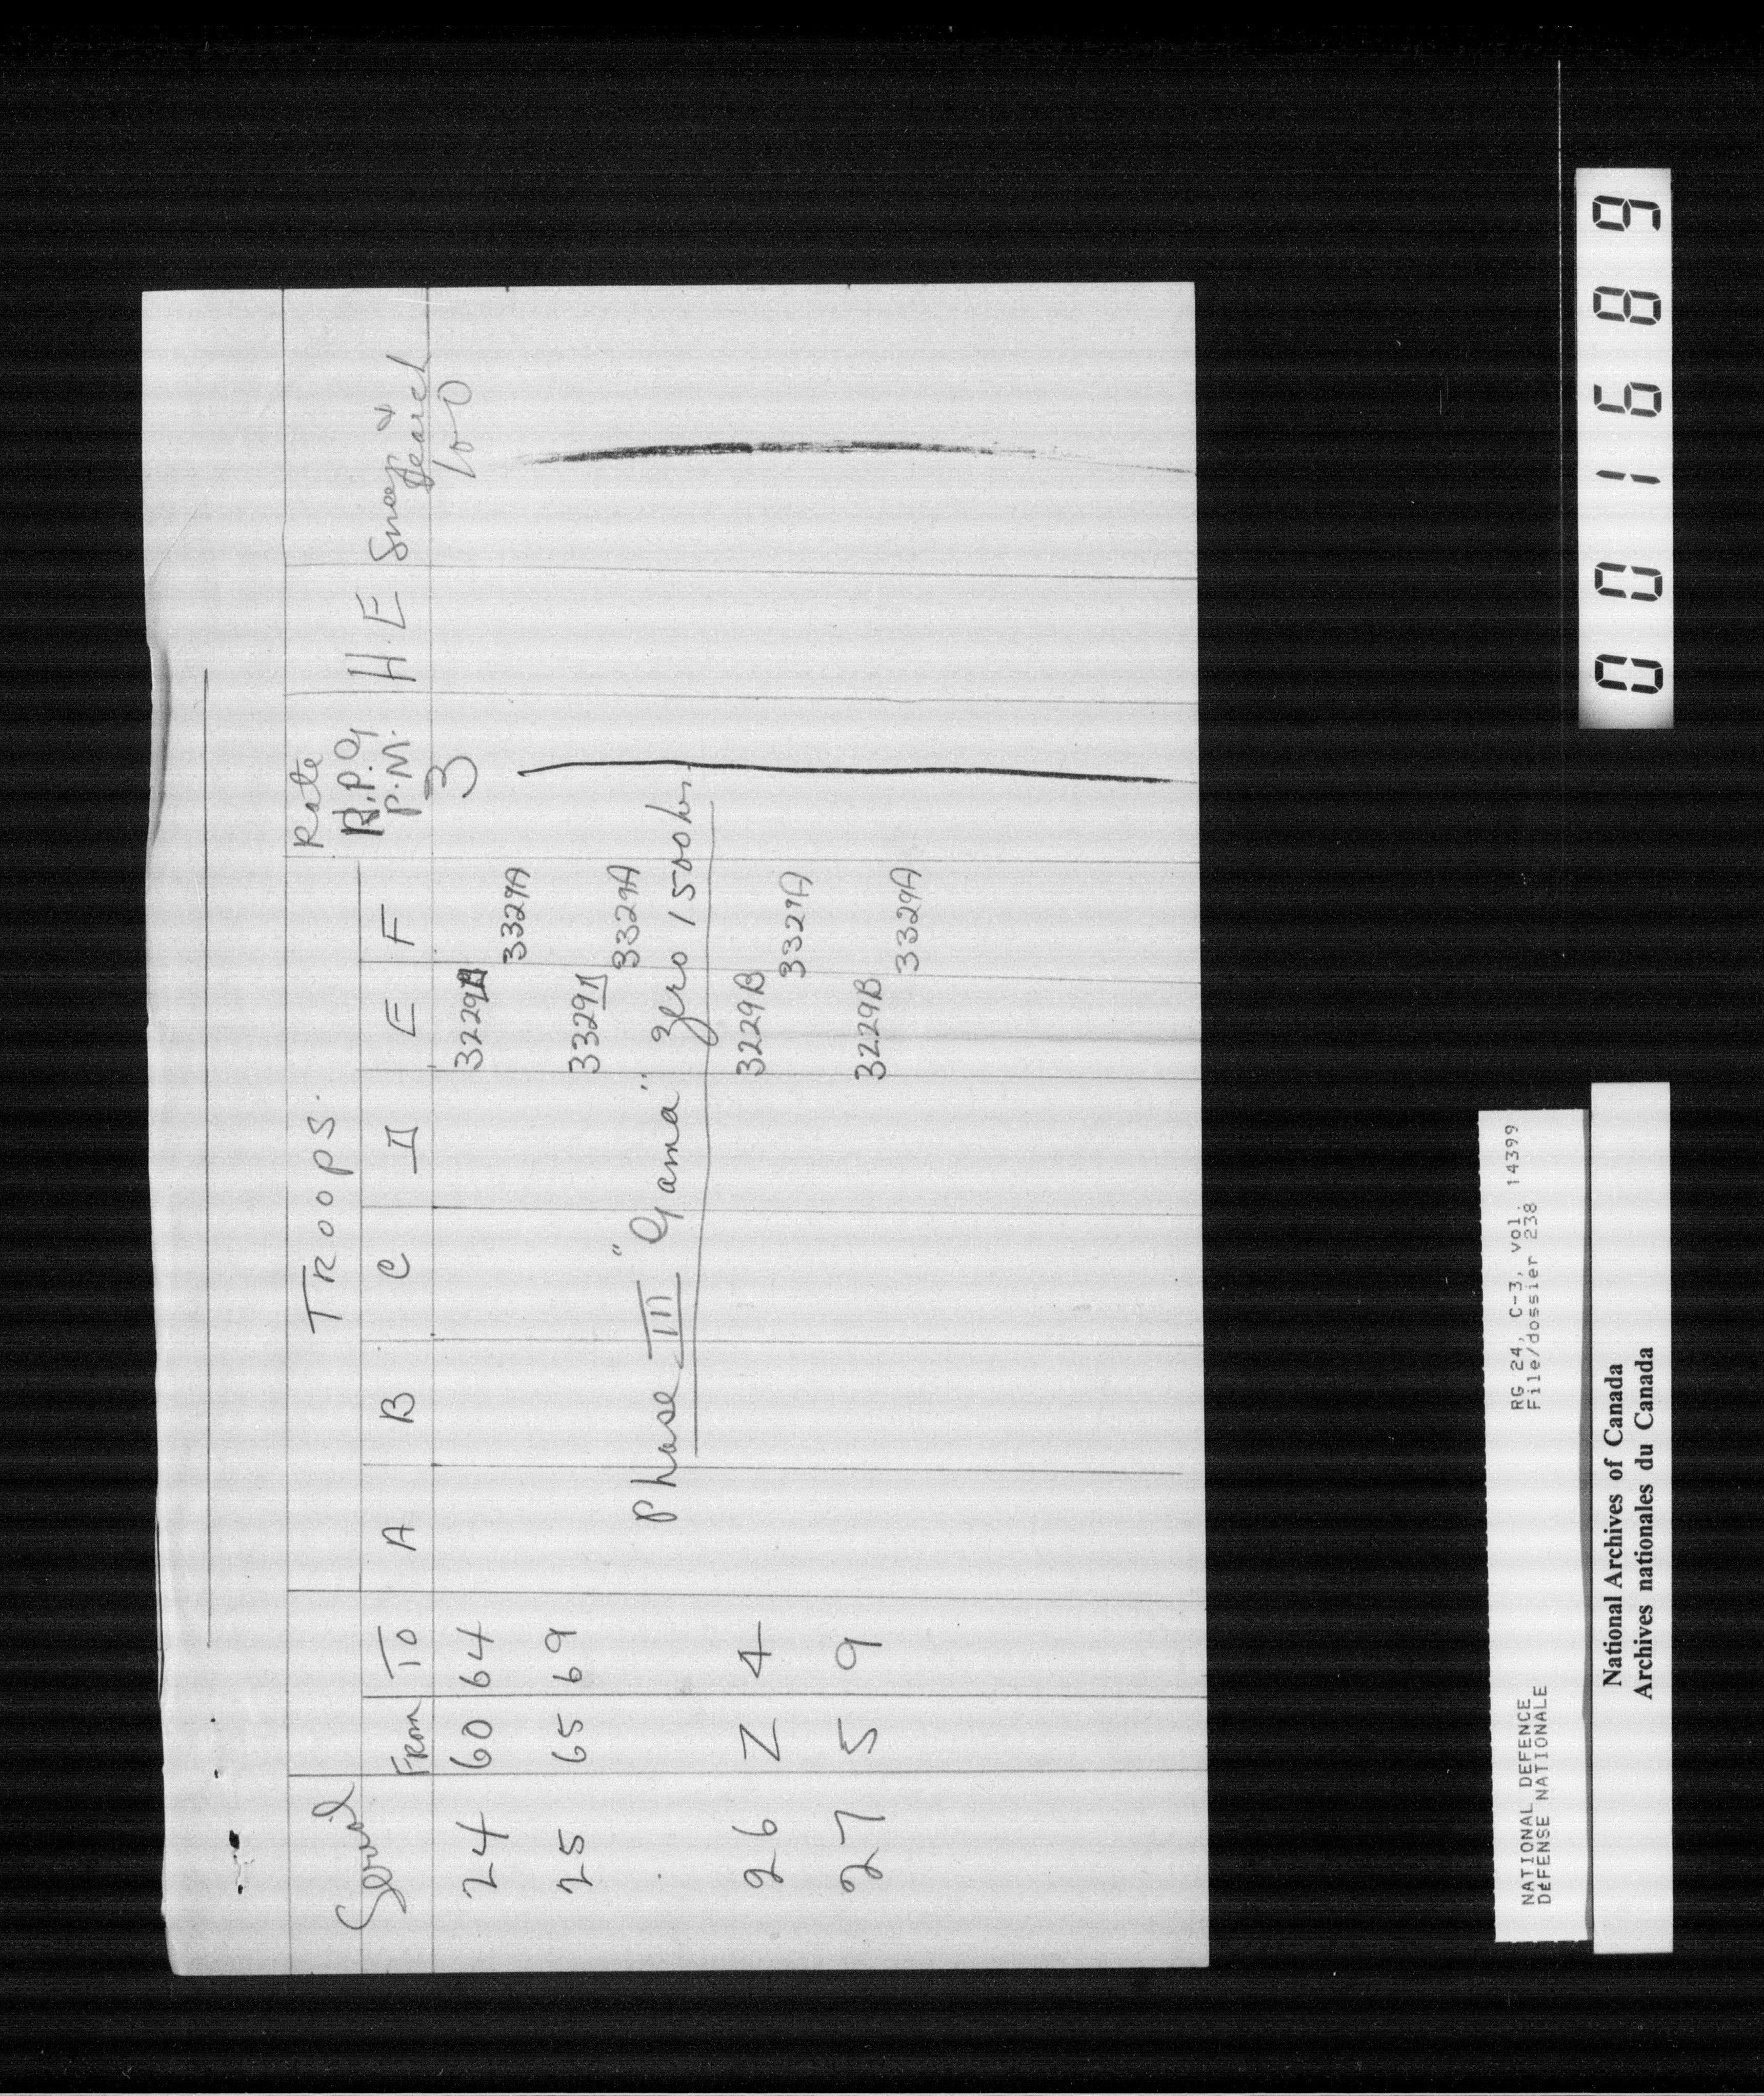 Serial TROOPS. Rate
From To A B C D E F R.P.G P.M. H.E Sweep & Search
24 60 64 3229 3329A 3 100
25 65 69 3329D 3329A
Phase III "Gama" Zero 1500 hrs.
26 Z 4 3229B 3329A
27 5 9 3229B 3329A
001689
NATIONAL DEFENCE RG 24, C-3, vol. 14399
DÉFENSE NATIONALE File/dossier 238
National Archives of Canada
Archives nationales du Canada